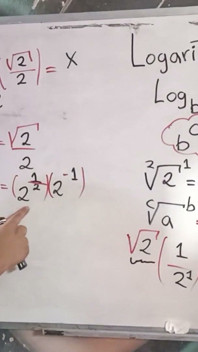 (√2/2) = x
= √2/2
= (2^(1/2))(2^(-1))
Logari
Log_b
b
²√2¹ =
ᶜ√a^b =
√2 (1/2¹